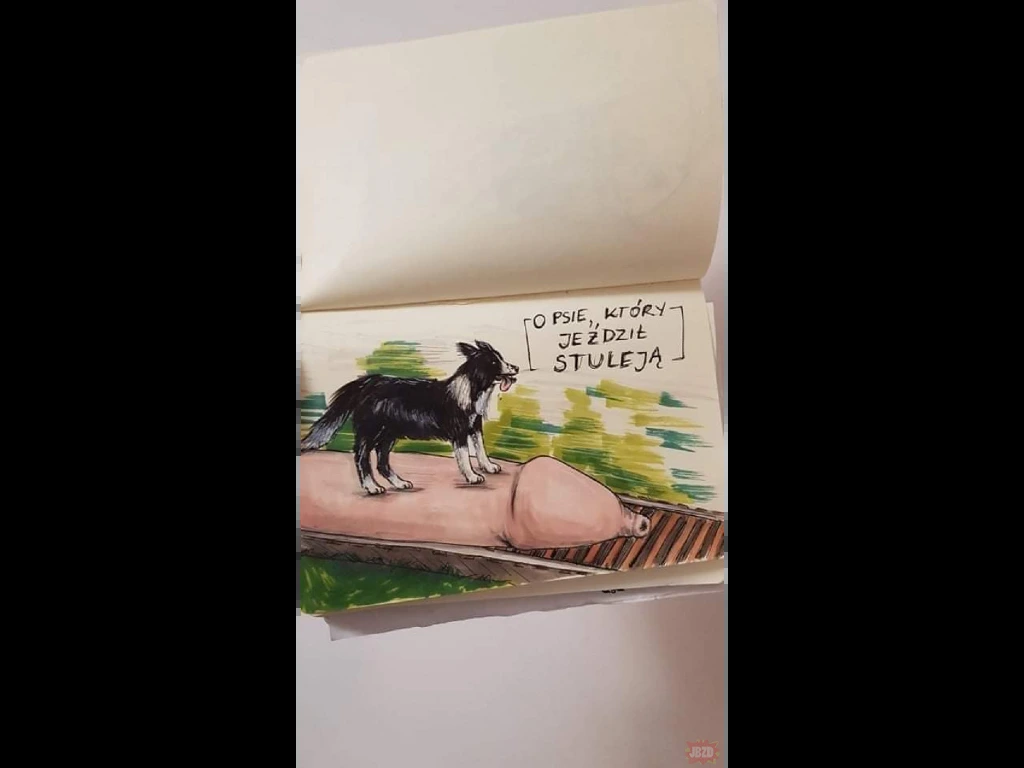 O PSIE, KTÓRY
JEŹDZIŁ
STULEJĄ
JBZD